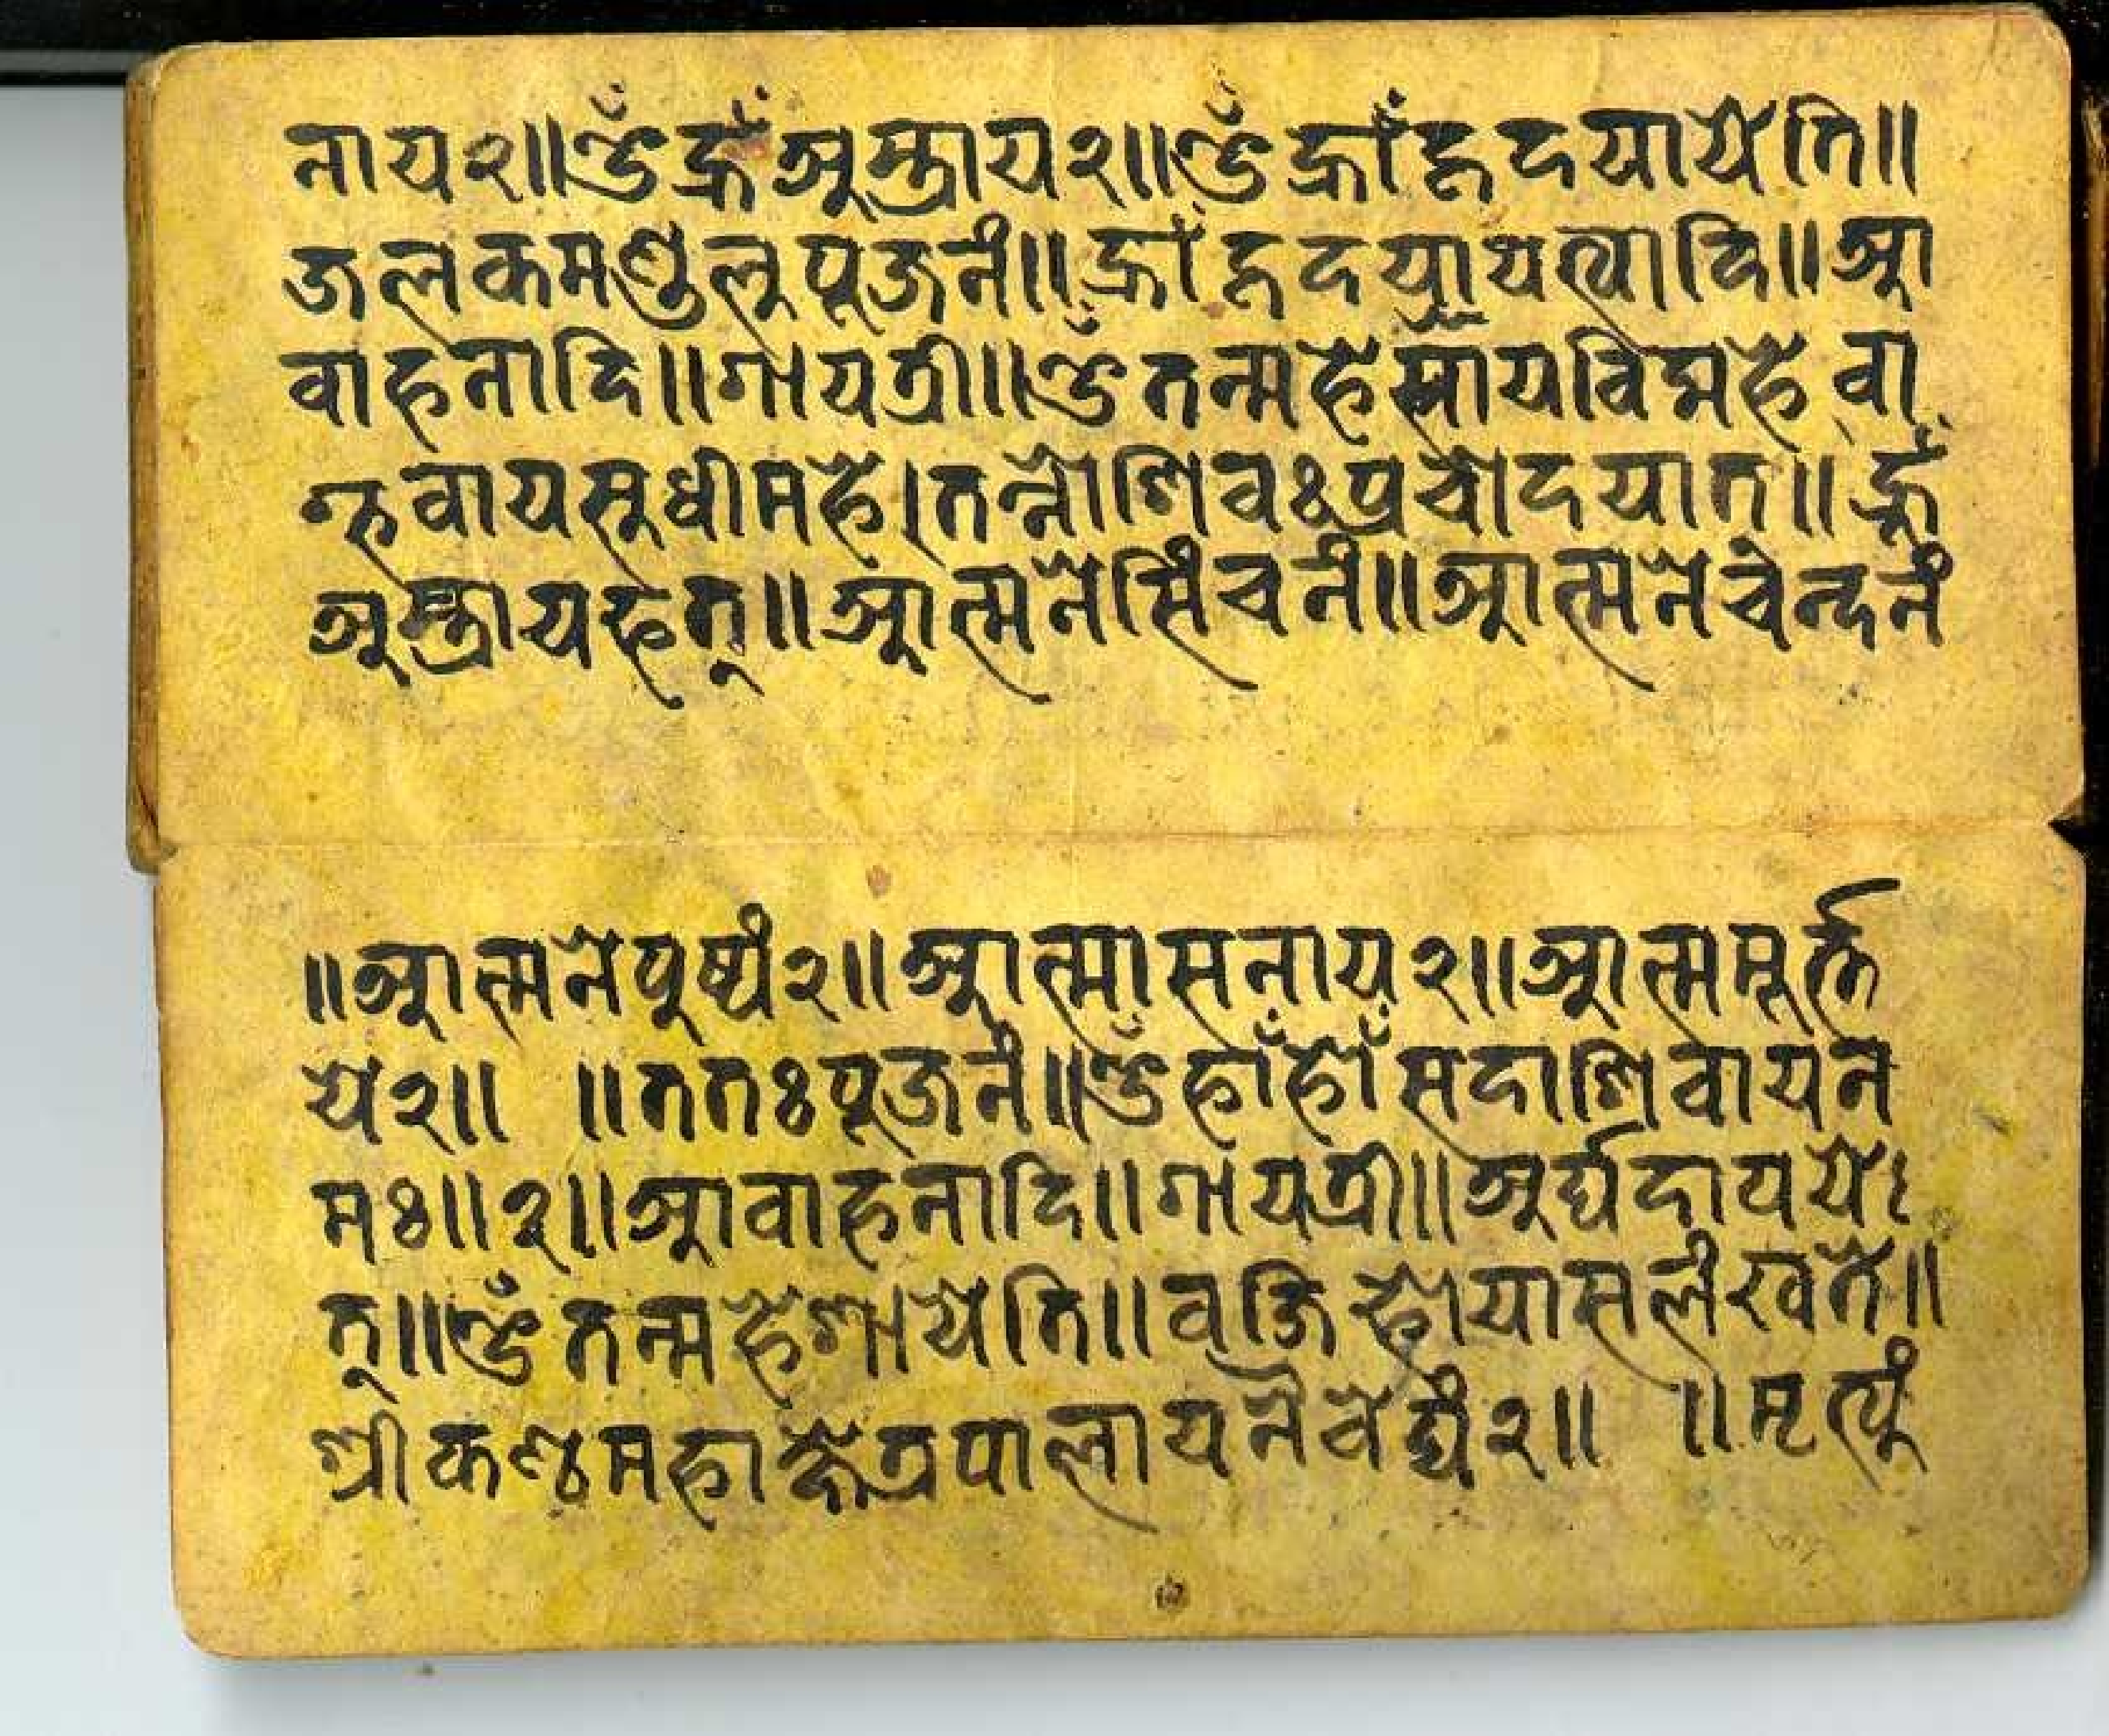 नाय२॥ॐ ह्रँः अस्त्राय२॥ॐ ह्राँ हृदयायेति॥
जलकमण्डलुपूजनं॥ ह्राँ हृदयाय त्यादि॥आ
वाहनादि॥गायत्री॥ॐ तन्महेसाय विद्महे वा
ग्रुवाय सुधीमहे।तन्नो शिवः प्रचोदयात्॥ ह्रँः
अस्त्राय फट्॥आत्मने सिंचनं॥आत्मने चेन्दनं
॥आत्मने पुष्पं२॥आत्मासनाय२॥आत्ममूर्त्त
ये२॥ ॥ततः पूजनं॥ॐ हाँ हौँ सदाशिवाय न
मः॥२॥आवाहनादि॥गायत्री॥अर्घ्यदायये
त्॥ॐ तन्महेशायेति॥वजि यासलंखते॥
श्रीकण्ठमहाक्षेत्रपालाय नैवेद्यं२॥ ॥मृत्युं